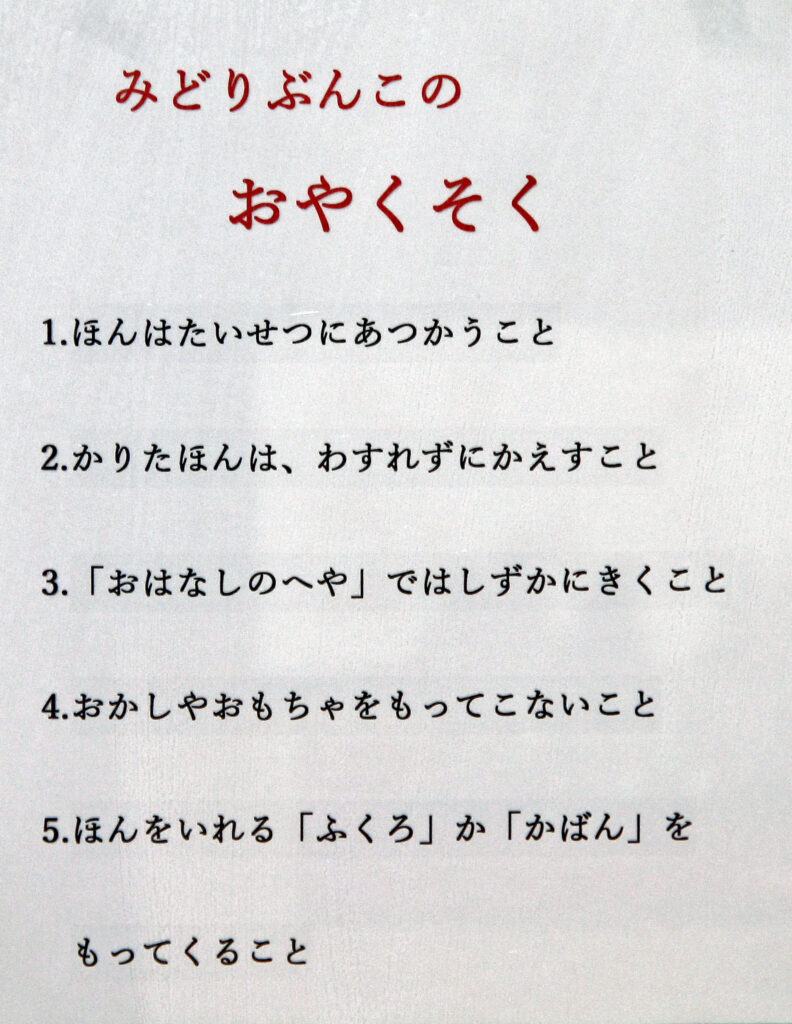 みどりぶんこの
おやくそく
1.ほんはたいせつにあつかうこと
2.かりたほんは、わすれずにかえすこと
3.「おはなしのへや」ではしずかにきくこと
4.おかしやおもちゃをもってこないこと
5.ほんをいれる「ふくろ」か「かばん」を
もってくること